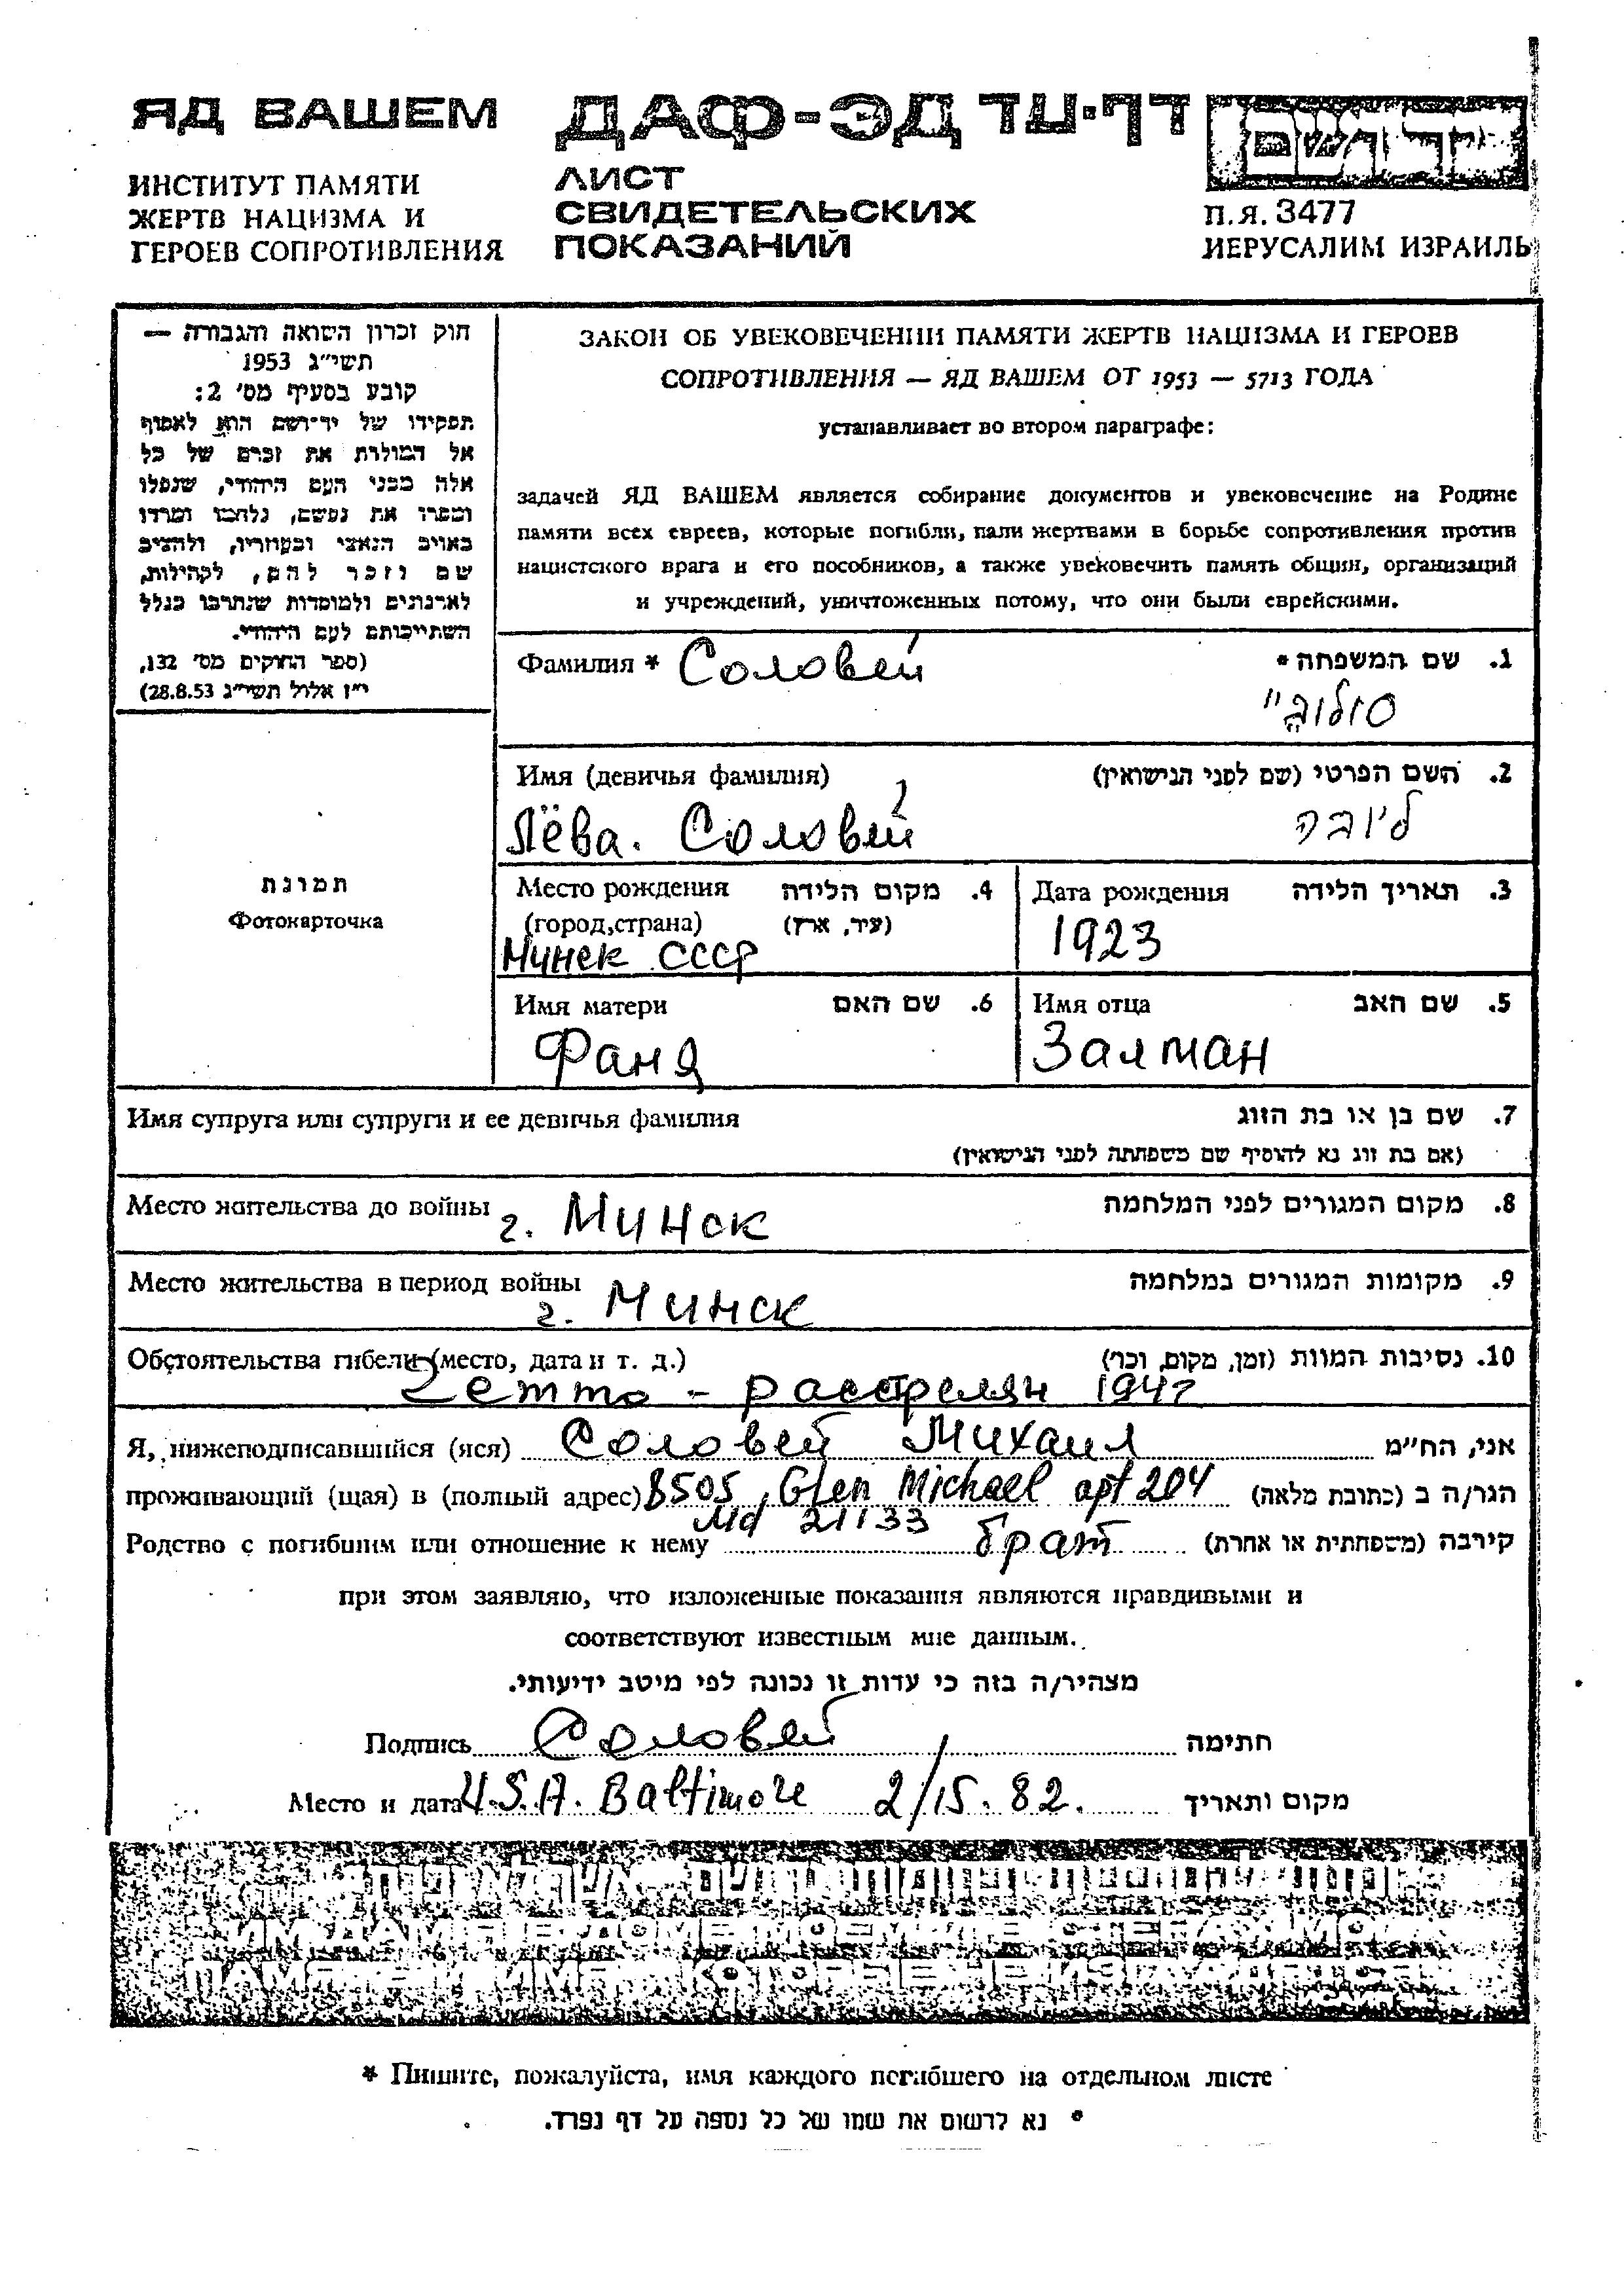 ЯД ВАШЕМ
ИНСТИТУТ ПАМЯТИ
ЖЕРТВ НАЦИЗМА И
ГЕРОЕВ СОПРОТИВЛЕНИЯ
ДАФ-ЭД דף-עד
ЛИСТ
СВИДЕТЕЛЬСКИХ
ПОКАЗАНИЙ
יד ושם
П.Я. 3477
ИЕРУСАЛИМ ИЗРАИЛЬ
חוק זכרון השואה והגבורה —
תשי״ג 1953
קובע בסעיף מס׳ 2:
תפקידו של יד־ושם הוא לאסוף
אל המולדת את זכרם של כל
אלה מבני העם היהודי, שנפלו
ומסרו את נפשם, נלחמו ומרדו
באויב הנאצי ובעוזריו, ולהציב
שם וזכר להם, לקהילות,
לארגונים ולמוסדות שנחרבו בגלל
השתייכותם לעם היהודי.
(ספר החוקים מס׳ 132,
י״ז אלול תשי״ג 28.8.53)
ЗАКОН ОБ УВЕКОВЕЧЕНИИ ПАМЯТИ ЖЕРТВ НАЦИЗМА И ГЕРОЕВ
СОПРОТИВЛЕНИЯ — ЯД ВАШЕМ ОТ 1953 — 5713 ГОДА
устанавливает во втором параграфе:
задачей ЯД ВАШЕМ является собирание документов и увековечение на Родине
памяти всех евреев, которые погибли, пали жертвами в борьбе сопротивления против
нацистского врага и его пособников, а также увековечить память общин, организаций
и учреждений, уничтоженных потому, что они были еврейскими.
Фамилия * Соловей 1. שם המשפחה *
סולוביי
Имя (девичья фамилия) 2. השם הפרטי (שם לפני הנישואין)
Лёва. Соловей ליובה
Место рождения 4. מקום הלידה
(город,страна) (עיר, ארץ)
Минск СССР
Дата рождения 3. תאריך הלידה
1923
תמונת
Фотокарточка
Имя матери 6. שם האם
Фаня
Имя отца 5. שם האב
Залман
Имя супруга или супруги и ее девичья фамилия 7. שם בן או בת הזוג
(אם בת זוג נא להוסיף שם משפחתה לפני הנישואין)
Место жительства до войны г. Минск 8. מקום המגורים לפני המלחמה
Место жительства в период войны г. Минск 9. מקומות המגורים במלחמה
Обстоятельства гибели (место, дата и т. д.) 10. נסיבות המוות (זמן, מקום, וכר׳)
Гетто - расстрелян
Я, нижеподписавшийся (яся) Соловей Михаил אני, הח״מ
проживающий (щая) в (полный адрес) 8505, Glen Michael apt 204 הגר/ה ב (כתובת מלאה)
Md 21133
Родство с погибшим или отношение к нему брат קירבה (משפחתית או אחרת)
при этом заявляю, что изложенные показания являются правдивыми и
соответствуют известным мне данным.
מצהיר/ה בזה כי עדות זו נכונה לפי מיטב ידיעותי.
Подпись Соловей חתימה
Место и дата U.S.A. Baltimore 2/15.82. מקום ותאריך
* Пишите, пожалуйста, имя каждого погибшего на отдельном листе
* נא לרשום את שמו של כל נספה על דף נפרד.